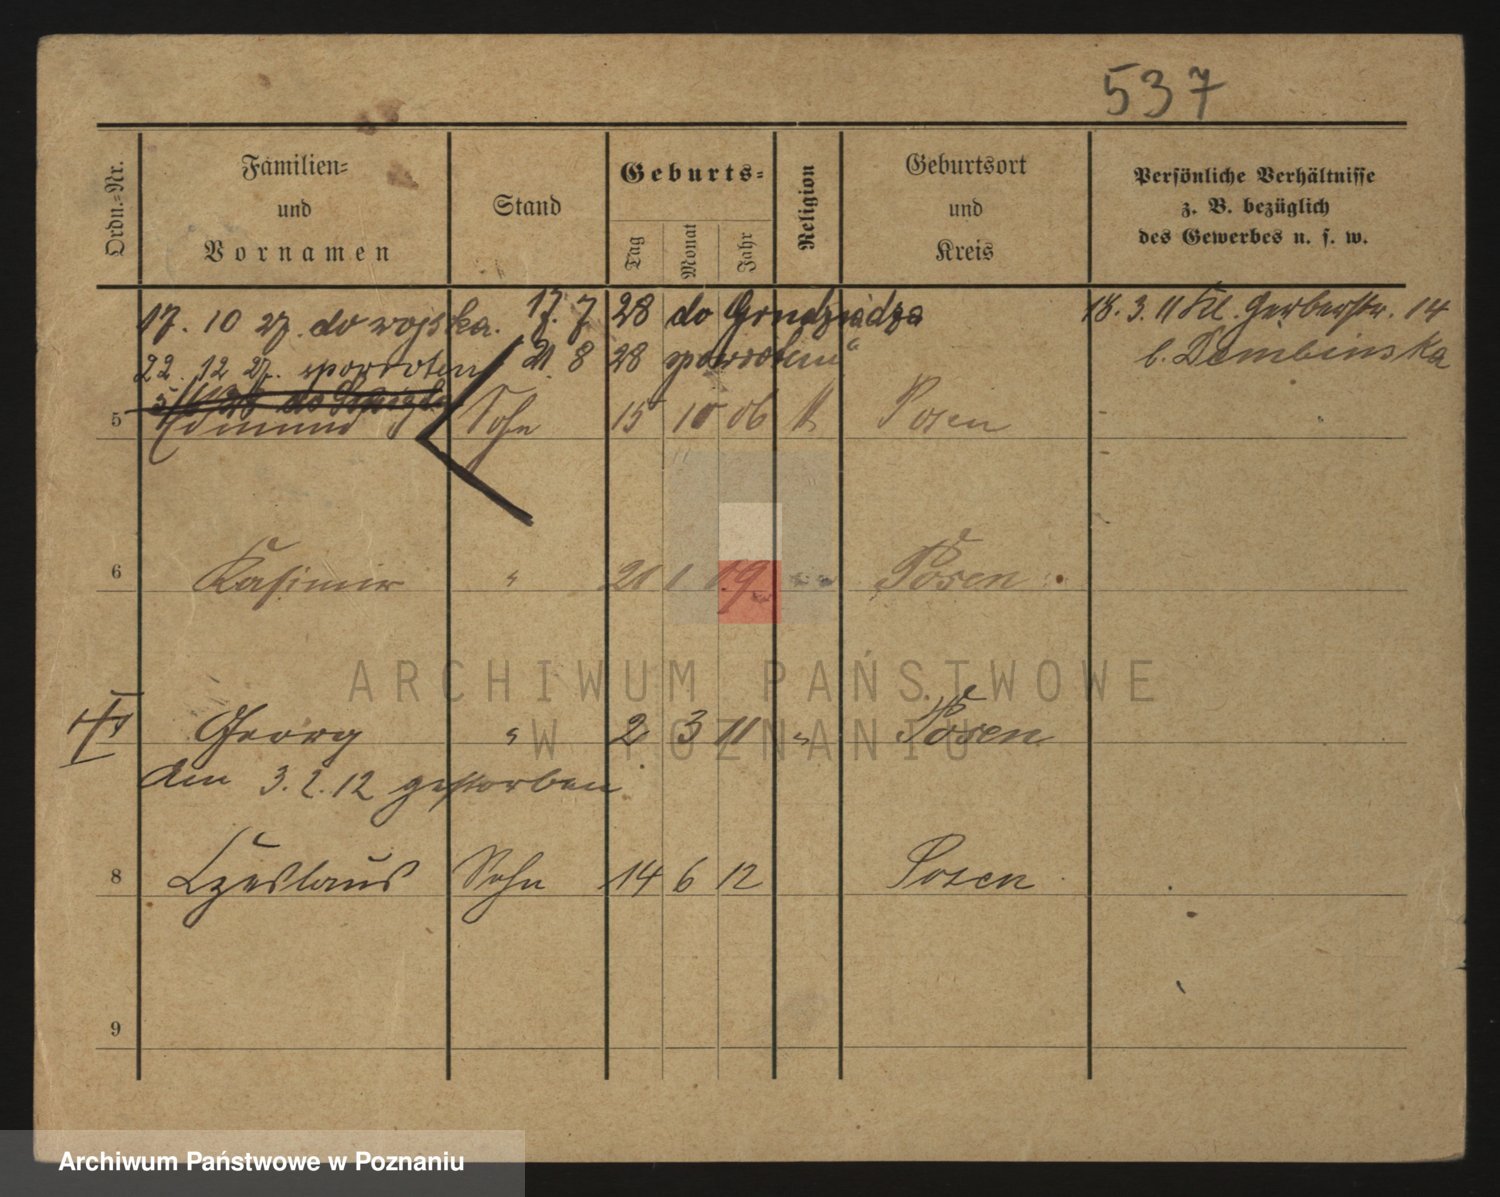 537
Ordn.=Nr.
Familien=
und
Vornamen
Stand
Geburts=
Tag
Monat
Jahr
Religion
Geburtsort
und
Kreis
Persönliche Verhältnisse
z. B. bezüglich
des Gewerbes u. s. w.
17. 10 27. do wojska. 17. 7 28 do Grudziądza
18. 3. 11 Kl. Gerberstr. 14
22. 12 27. powrotem 21. 8 28 powrotem
b. Dembinska
5 Edmund Sohn 15 10 06 k Posen
6 Kasimir " 21 1 09 " Posen
Georg " 2 3 11 " Posen
am 3. 2. 12 gestorben
8 Czeslaus Sohn 14 6 12 Posen
9
ARCHIWUM PAŃSTWOWE
W POZNANIU
Archiwum Państwowe w Poznaniu